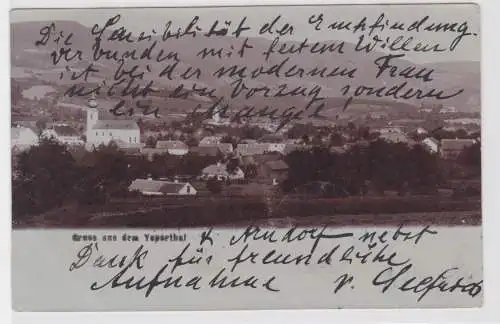 Die Sensibilität der Empfindung.
verbunden mit festem Willen
ist bei der modernen Frau
nicht ein Vorzug sondern
ein Mangel!
Gruss aus dem Ysperthal
Arndorf nebst
Dank für freundliche
Aufnahme v.